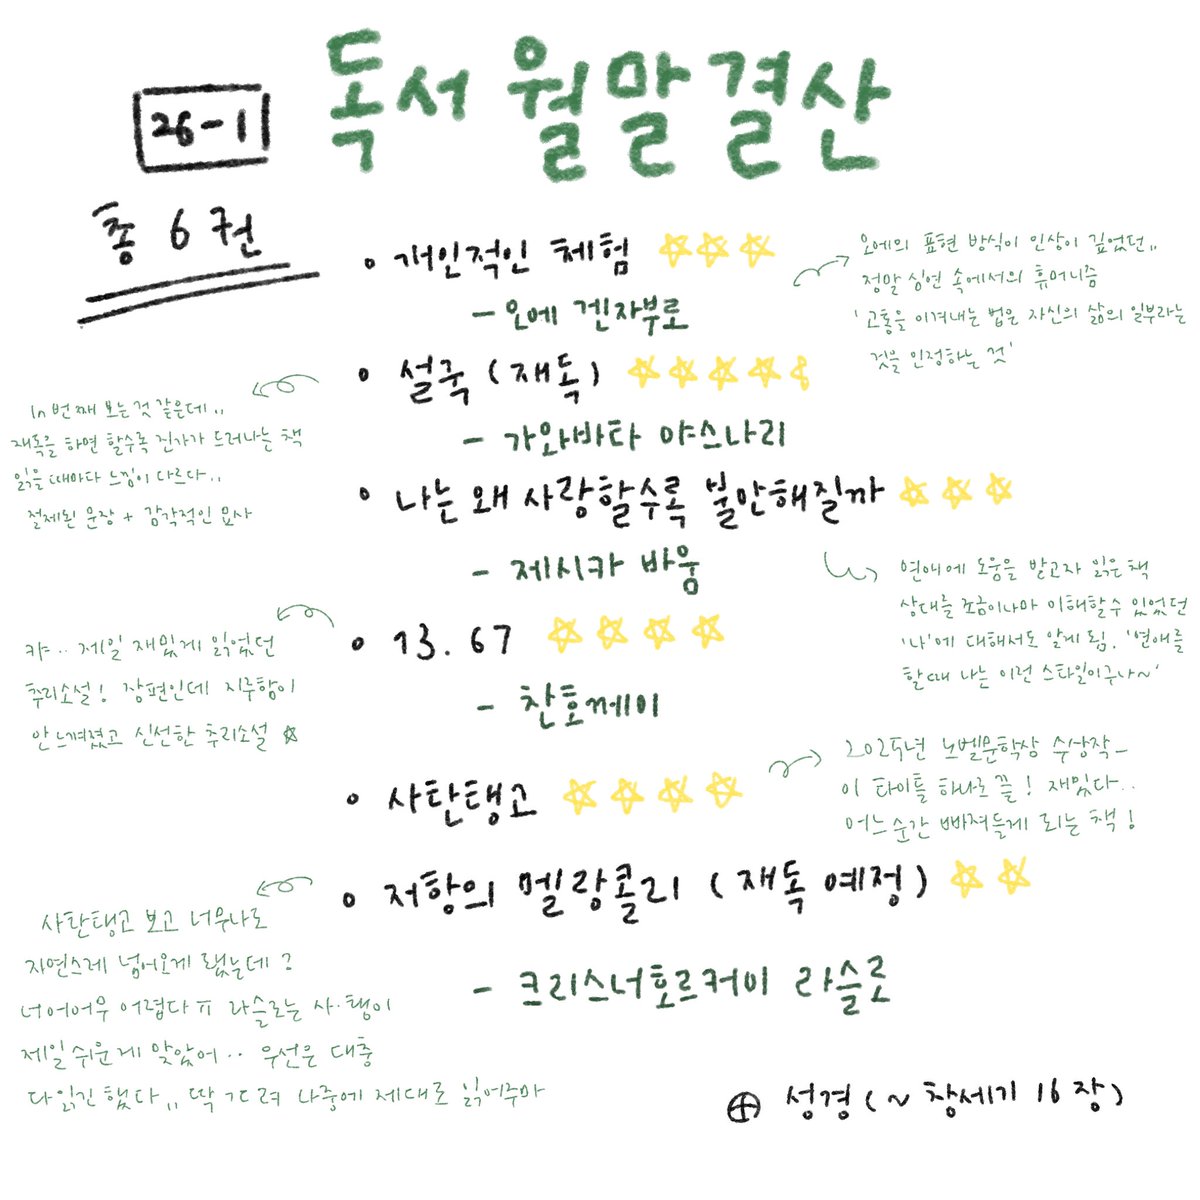 독서 월말결산
26-1
총 6권
• 개인적인 체험 ☆☆☆
- 오에 겐자부로
오에의 표현 방식이 인상이 깊었던,,
정말 심연 속에서의 휴머니즘
'고통을 이겨내는 법은 자신의 삶의 일부라는
것을 인정하는 것'
• 설국 (재독) ☆☆☆☆
- 가와바타 야스나리
1n번째 보는 것 같은데,,
재독을 하면 할수록 진가가 드러나는 책
읽을 때마다 느낌이 다르다,,
절제된 문장 + 감각적인 묘사
• 나는 왜 사랑할수록 불안해질까 ☆☆☆
- 제시카 바움
연애에 도움을 받고자 읽은 책
상대를 조금이나마 이해할 수 있었던
'나'에 대해서도 알게 됨. '연애를
할 때 나는 이런 스타일이구나~'
• 13.67 ☆☆☆☆
- 찬호께이
캬.. 제일 재밌게 읽었던
추리소설! 장편인데 지루함이
안 느껴졌고 신선한 추리소설 ☆
• 사탄탱고 ☆☆☆☆
2025년 노벨문학상 수상작_
이 타이틀 하나로 끝! 재밌다..
어느 순간 빠져들게 되는 책!
• 저항의 멜랑콜리 (재독 예정) ☆☆
- 크리스너호르커이 라슬로
사탄탱고 보고 너무나도
자연스레 넘어오게 됐는데?
너어어무 어렵다ㅠ 라슬로는 사.탱이
제일 쉬운 게 맞았어.. 우선은 대충
다 읽긴 했다,, 딱 기다려 나중에 제대로 읽어주마
⊕ 성경 (~ 창세기 16장)